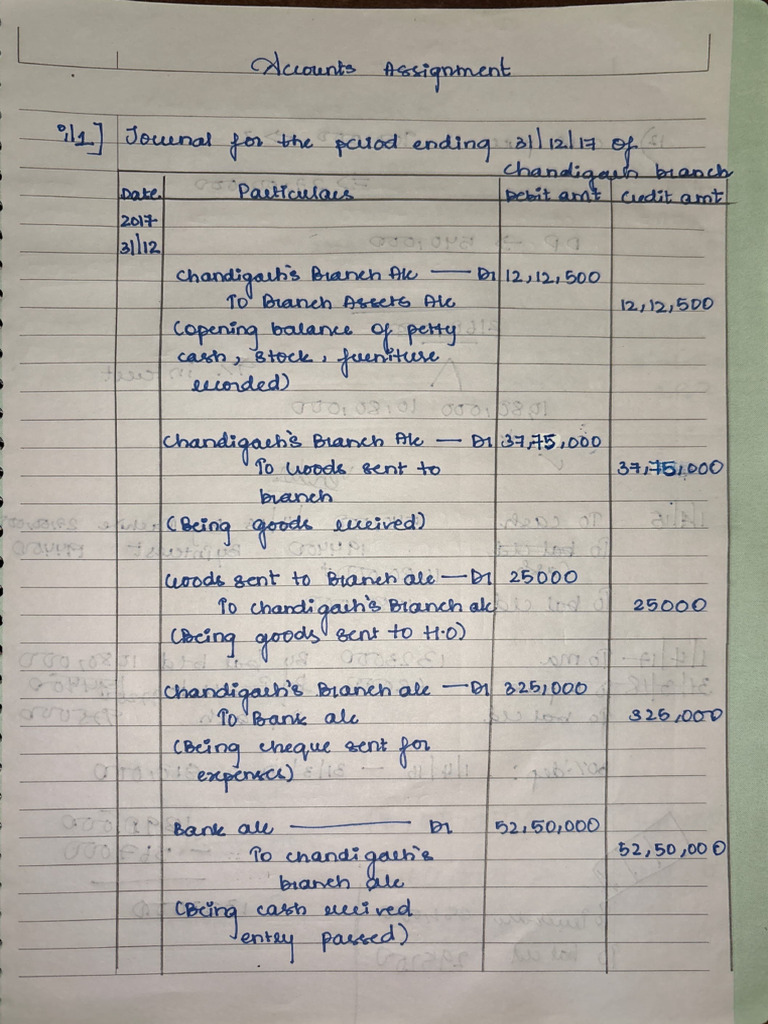 Accounts Assignment
i/1] Journal for the period ending 31/12/17 of
Chandigarh branch
Date Particulars Debit amt Credit amt
2017
31/12
Chandigarh's Branch A/c — Dr 12,12,500
To Branch Assets A/c 12,12,500
(opening balance of petty
cash, stock, furniture
recorded)
Chandigarh's Branch A/c — Dr 37,75,000
To Goods sent to 37,75,000
branch
(Being goods received)
Goods sent to Branch a/c — Dr 25000
To Chandigarh's Branch a/c 25000
(Being goods sent to H.O)
Chandigarh's Branch a/c — Dr 325,000
To Bank a/c 325,000
(Being cheque sent for
expenses)
Bank a/c — Dr 52,50,000
To Chandigarh's 52,50,000
branch a/c
(Being cash received
entry passed)